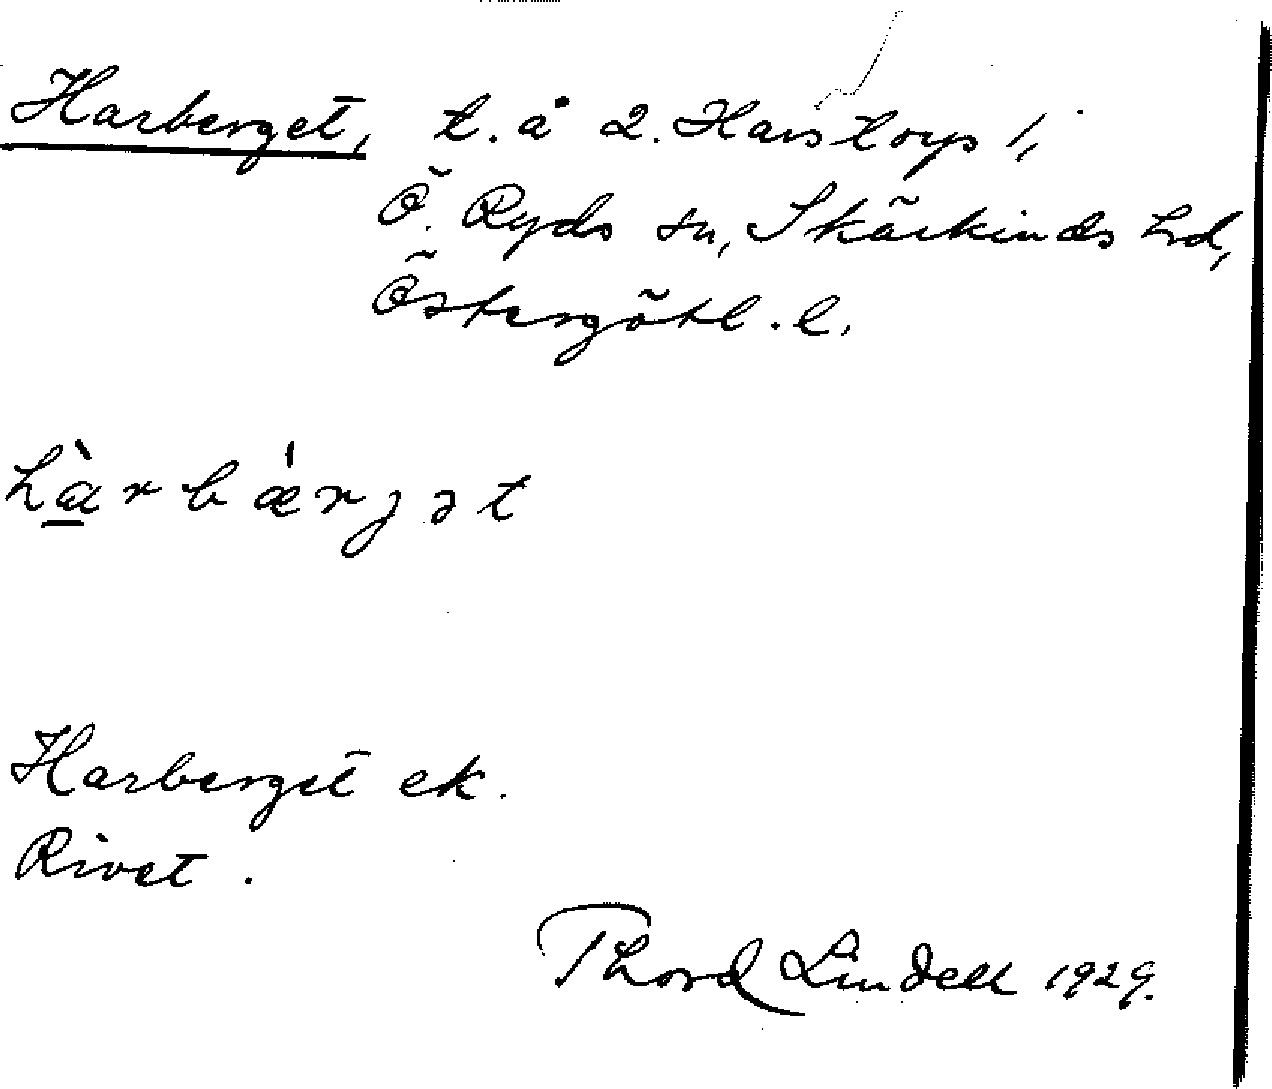 Harberget, t. å 2. Harstorp 1,
Ö. Ryds sn, Skärkinds hd,
Östergötl. l.
hàrbǽrjət
Harberget ek.
Rivet.
Thord Lindell 1929.